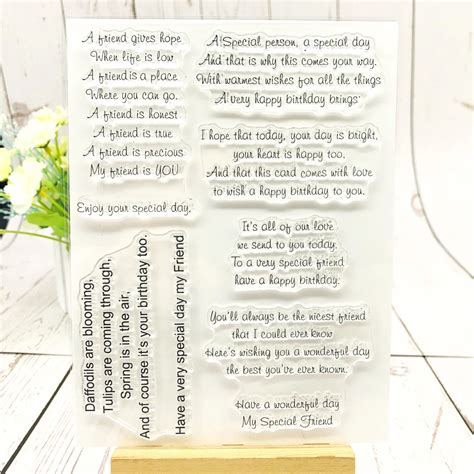 A friend gives hope
When life is low
A friend is a place
Where you can go.
A friend is honest
A friend is true
A friend is precious
My friend is YOU
Enjoy your special day.
Daffodils are blooming,
Tulips are coming through,
Spring is in the air,
And of course it's your birthday too.
Have a very special day my Friend
A Special person, a special day
And that is why this comes your way.
With warmest wishes for all the things
A very happy birthday brings.
I hope that today, your day is bright,
your heart is happy too.
And that this card comes with love
to wish a happy birthday to you.
It's all of our love
we send to you today,
To a very special friend
have a happy birthday.
You'll always be the nicest friend
that I could ever know
Here's wishing you a wonderful day
the best you've ever known.
Have a wonderful day
My Special Friend